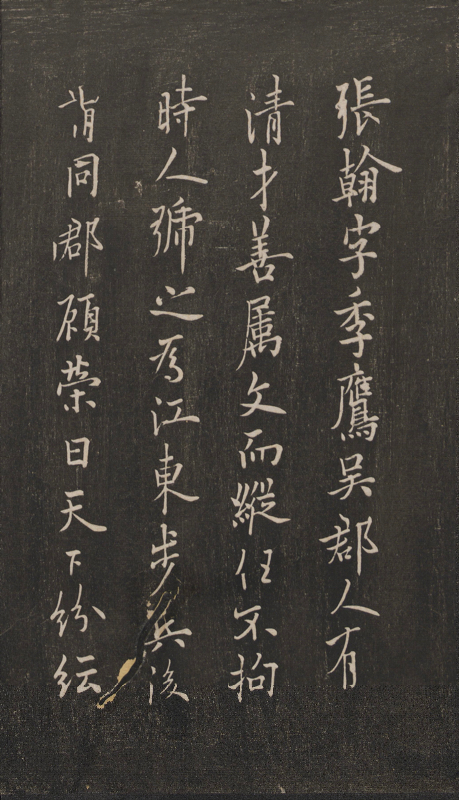 張翰字季鷹吳郡人有
清才善属文而縱任不拘
時人號之為江東步兵後
同郡顧榮曰天下紛紜